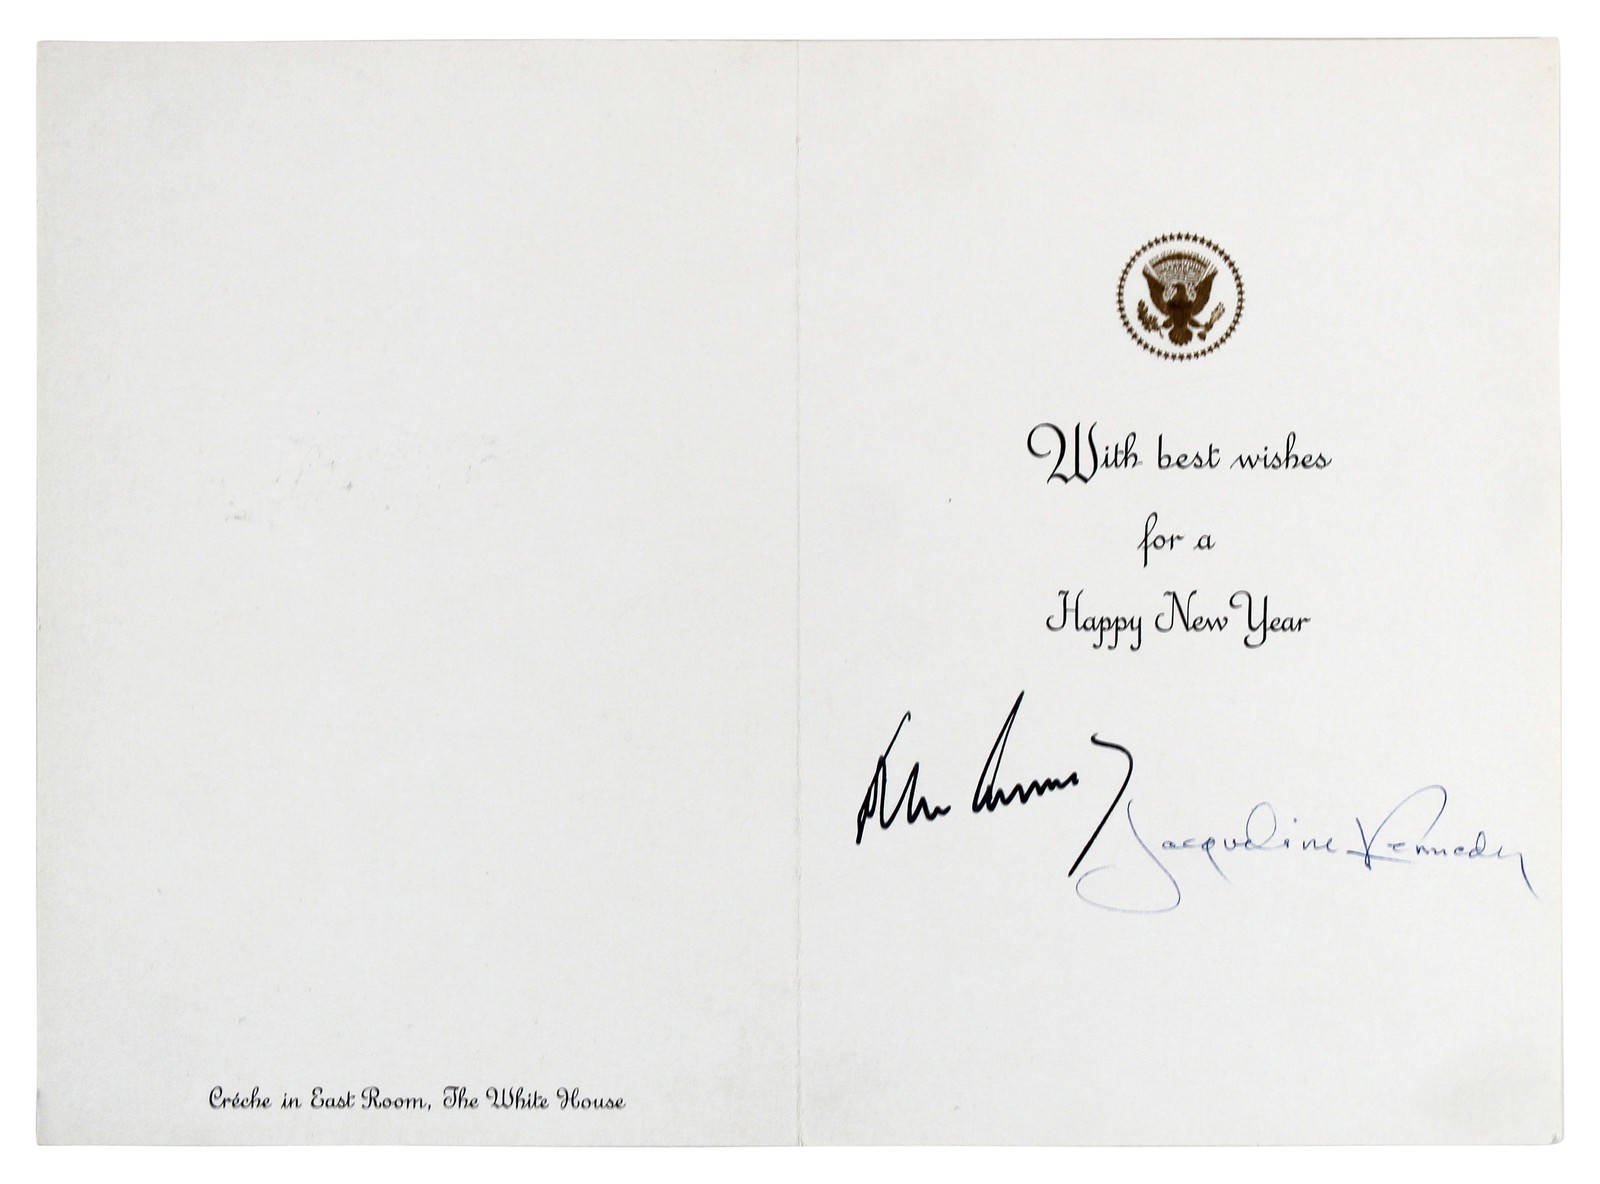 With best wishes
for a
Happy New Year
Jacqueline Kennedy
Créche in East Room, The White House